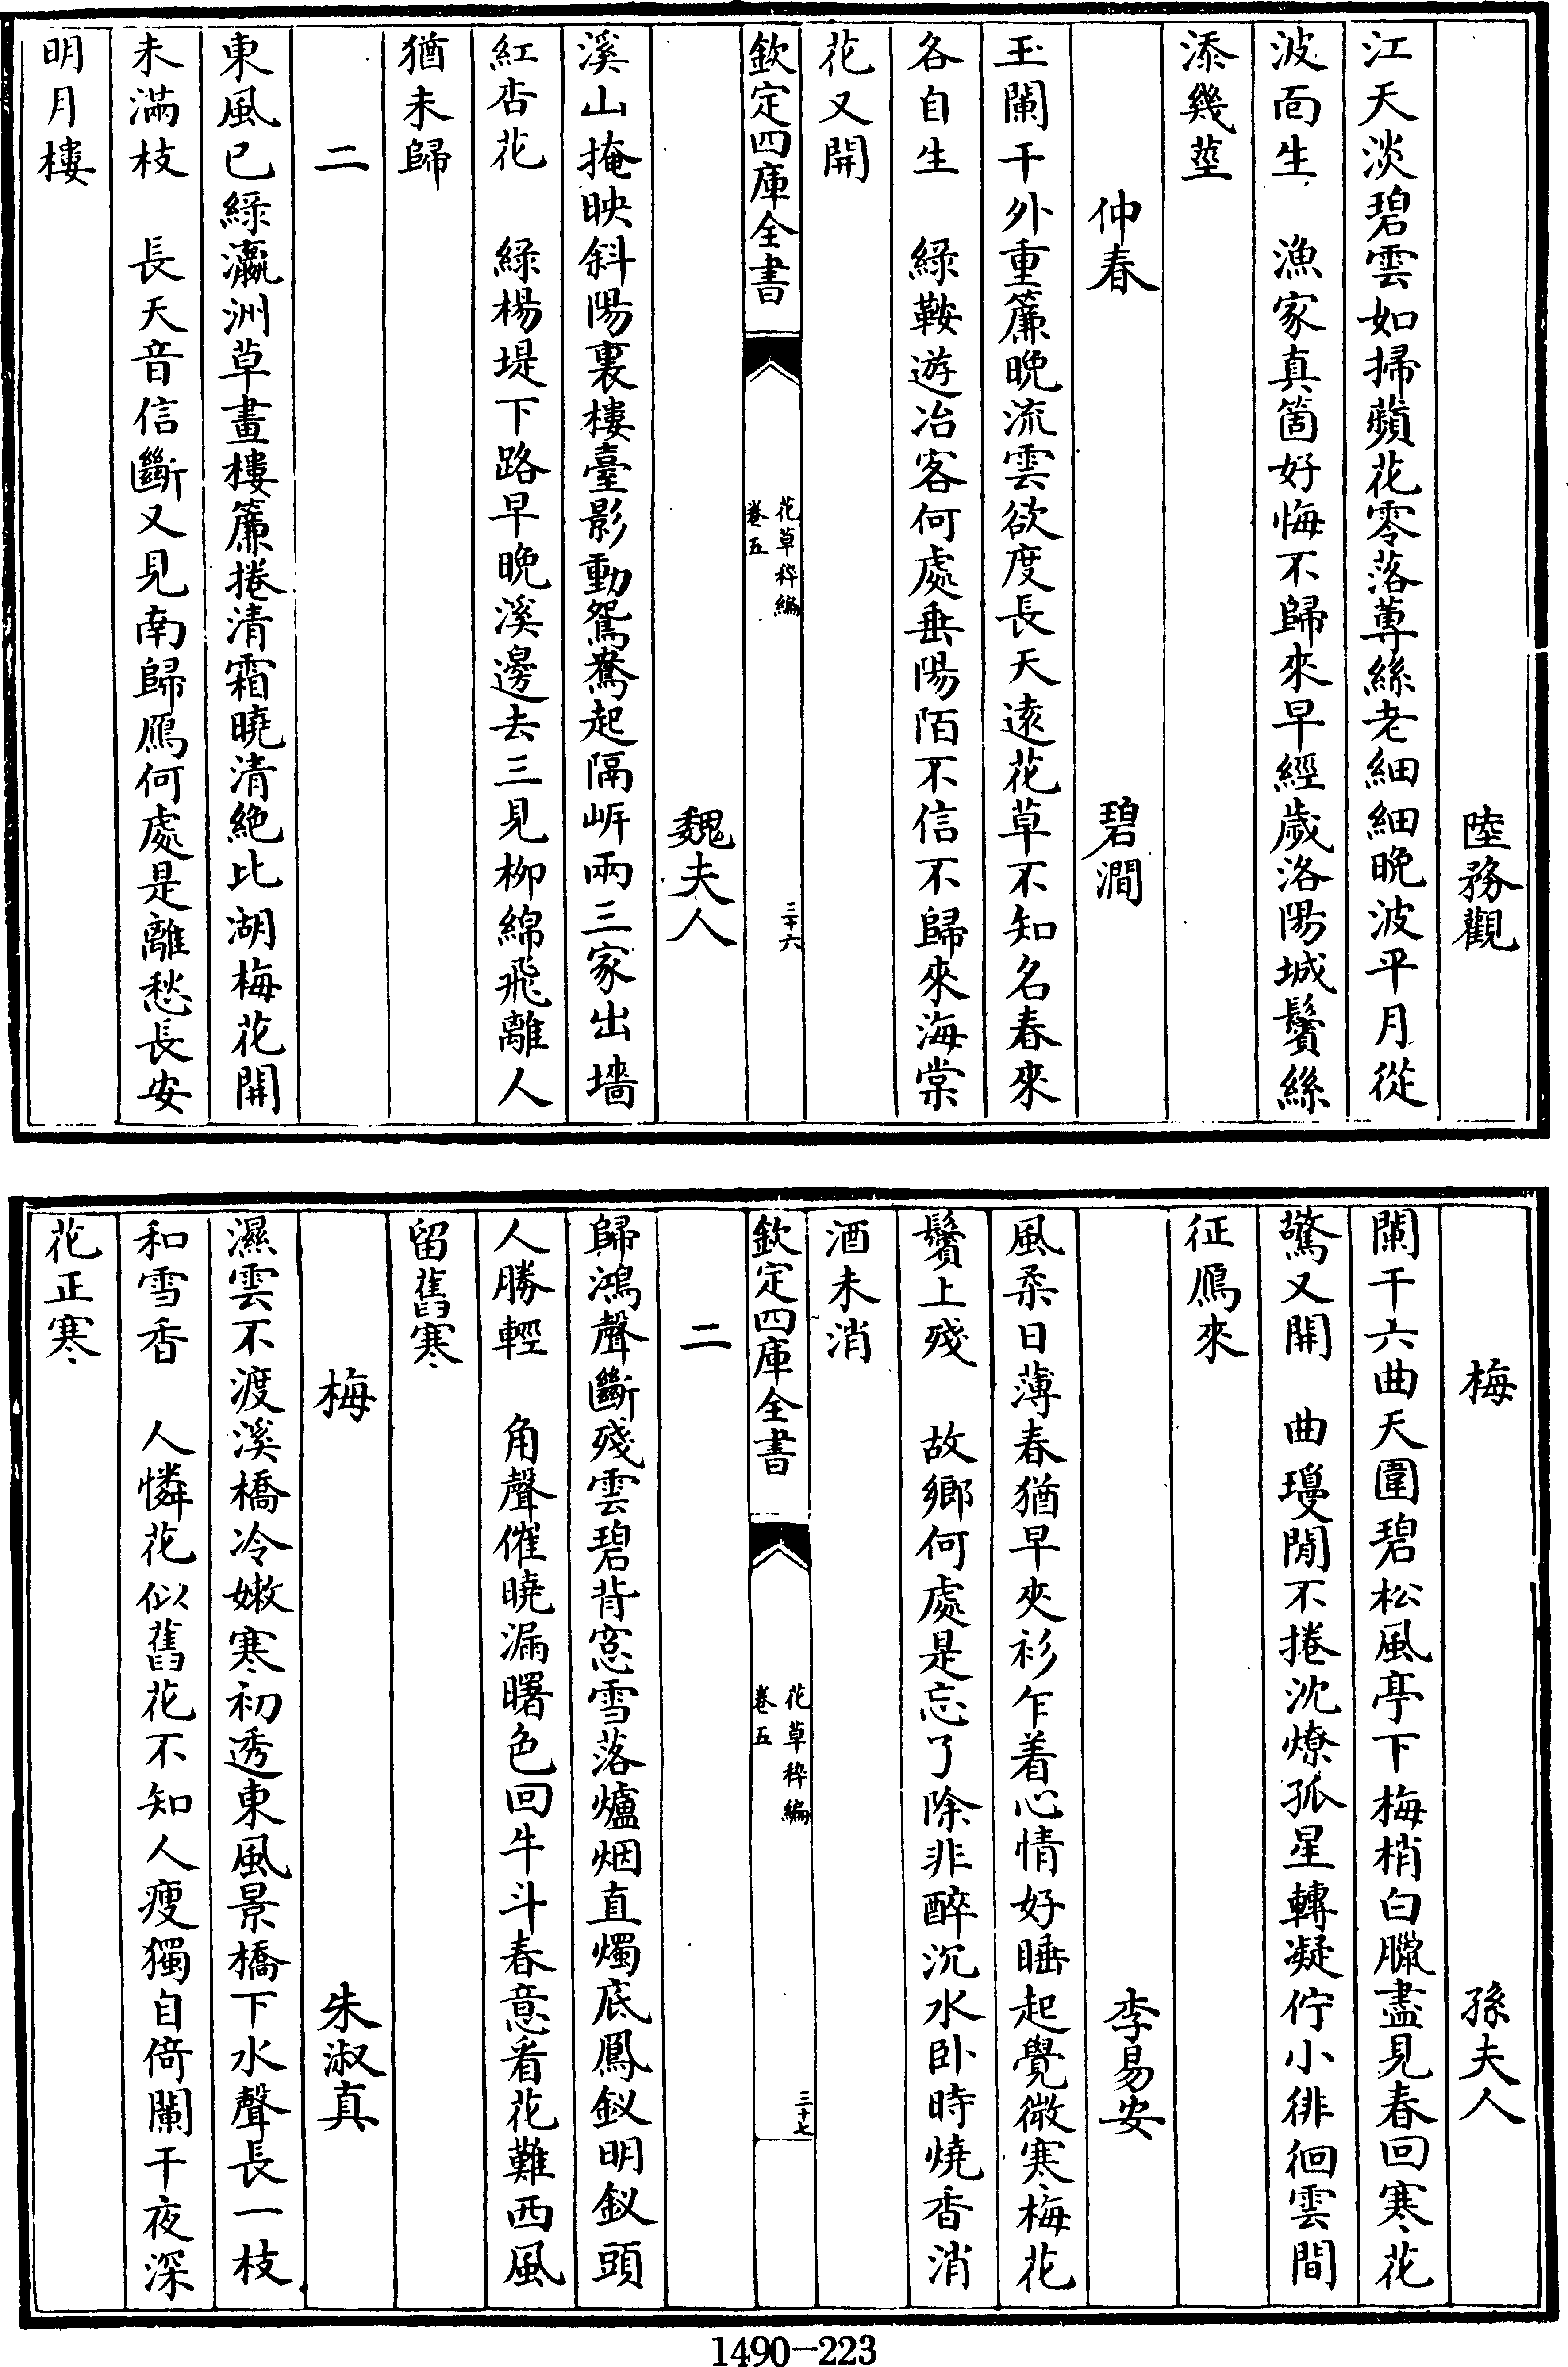 陸務觀
江天淡碧雲如掃蘋花零落蓴絲老細細晚波平月從
波面生　漁家真箇好悔不歸來早經歲洛陽城鬢絲
添幾莖
仲春　碧澗
玉闌干外重簾晚流雲欲度長天遠花草不知名春來
各自生　緑鞍遊冶客何處垂陽陌不信不歸來海棠
花又開
欽定四庫全書　花草稡編　卷五　三十六
魏夫人
溪山掩映斜陽裏樓臺影動鴛鴦起隔岍兩三家出墻
紅杏花　緑楊堤下路早晚溪邊去三見柳綿飛離人
猶未歸
二
東風已緑瀛洲草畫樓簾捲清霜曉清絶比湖梅花開
未滿枝　長天音信斷又見南歸鴈何處是離愁長安
明月樓
梅　孫夫人
闌干六曲天圍碧松風亭下梅梢白臘盡見春回寒花
驚又開　曲瓊閒不捲沈燎孤星轉凝佇小徘徊雲間
征鴈來
李易安
風柔日薄春猶早夾衫乍着心情好睡起覺微寒梅花
鬢上殘　故鄉何處是忘了除非醉沉水卧時燒香消
酒未消
欽定四庫全書　花草稡編　卷五　三十七
二
歸鴻聲斷殘雲碧背窓雪落爐烟直燭底鳳釵明釵頭
人勝輕　角聲催曉漏曙色回牛斗春意看花難西風
留舊寒
梅　朱淑真
濕雲不渡溪橋冷嫩寒初透東風景橋下水聲長一枝
和雪香　人憐花似舊花不知人瘦獨自倚闌干夜深
花正寒
1490-223